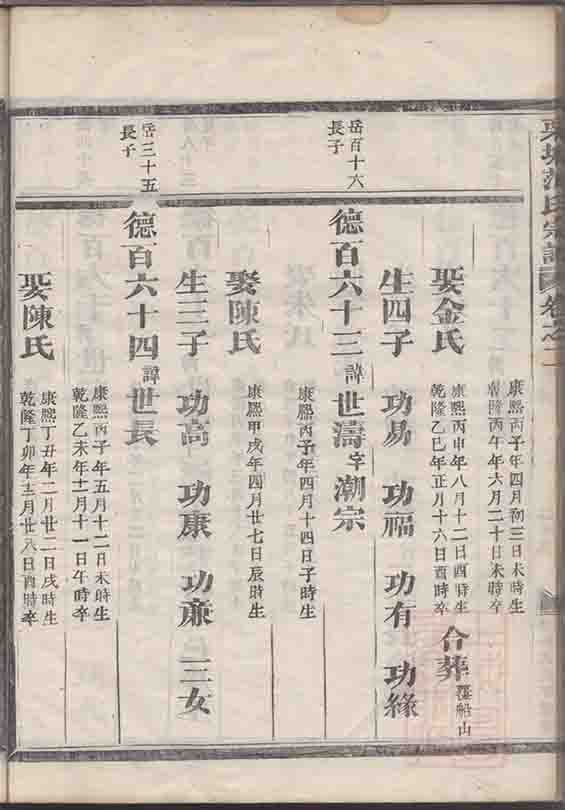 東城范氏宗譜 卷之二
康熙丙子年四月初三日未時生
乾隆丙午年六月二十日未時卒
娶金氏
康熙丙申年八月十二日酉時生
乾隆乙巳年正月十六日酉時卒
合葬 船山
生四子 功易 功福 功有 功緣
岳百十六
長子
德百六十三 諱 世濤 字 潮宗
康熙丙子年四月十四日子時生
娶陳氏
康熙甲戌年四月廿七日辰時生
生三子 功高 功康 功廉 三女
岳三十五
長子
德百六十四 諱 世長
康熙丙子年五月十二日未時生
乾隆乙未年十一月十一日午時卒
娶陳氏
康熙丁丑年二月廿二日戌時生
乾隆丁卯年十二月廿八日酉時卒